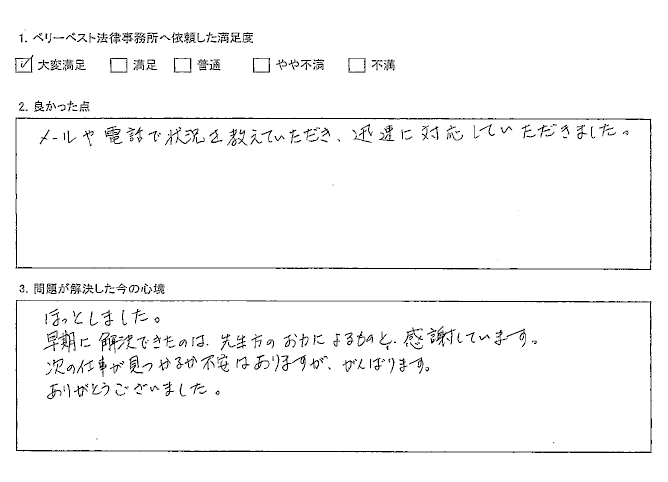 1. ベリーベスト法律事務所へ依頼した満足度
☑ 大変満足 □ 満足 □ 普通 □ やや不満 □ 不満
2. 良かった点
メールや電話で状況を教えていただき、迅速に対応していただきました。
3. 問題が解決した今の心境
ほっとしました。
早期に解決できたのは、先生方のお力によるものと、感謝しています。
次の仕事が見つかるか不安はありますが、がんばります。
ありがとうございました。